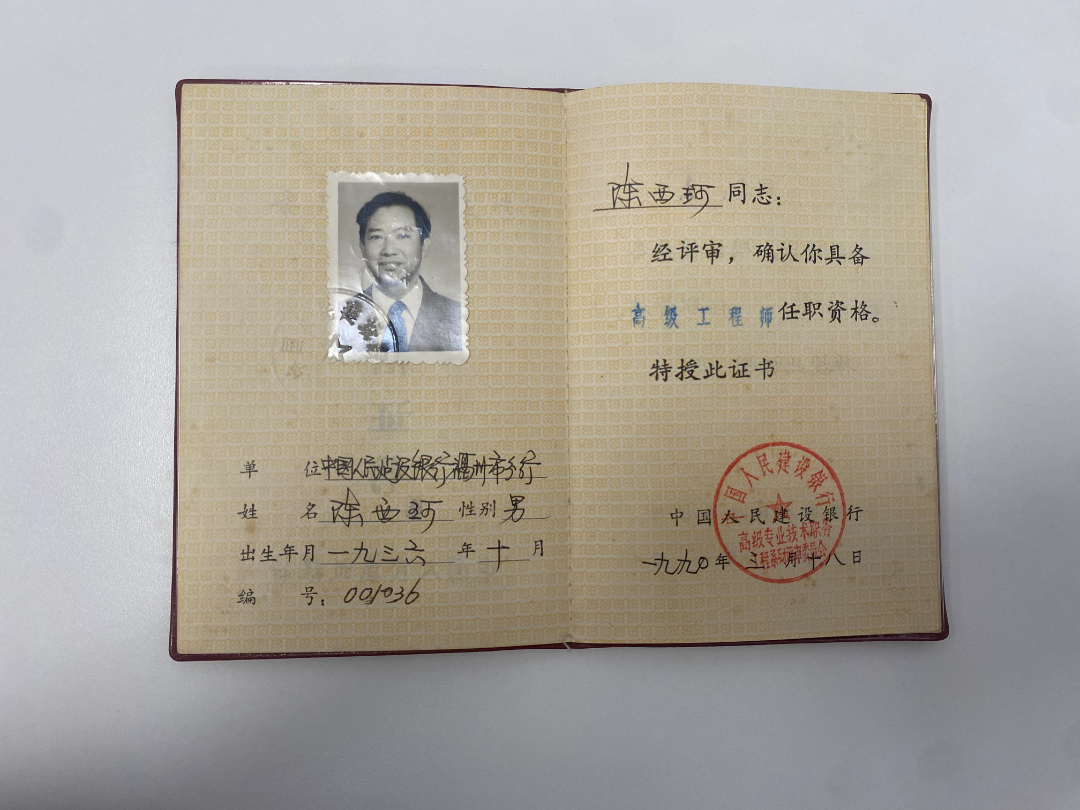 单 位 中国人民建设银行福州市分行
姓 名 陈西珂 性别 男
出生年月 一九三六 年 十 月
编 号: 001036
陈西珂 同志:
经评审，确认你具备
高级工程师 任职资格。
特授此证书
中国人民建设银行
高级专业技术职务
中国人民建设银行
一九九〇年 三 月 十八 日